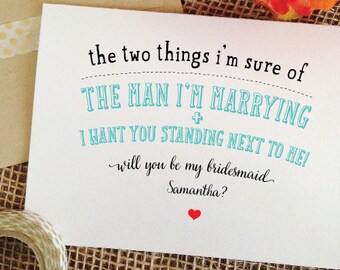 the two things i'm sure of
THE MAN I'M MARRYING
+
I WANT YOU STANDING NEXT TO ME!
will you be my bridesmaid
Samantha?